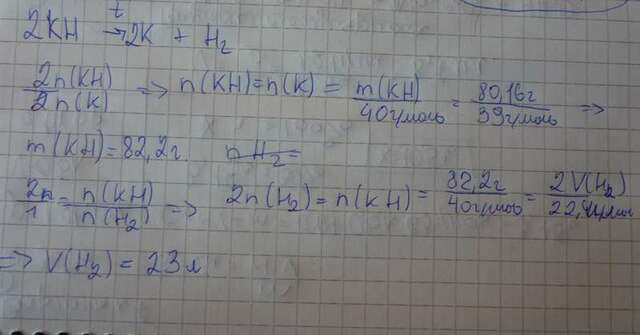 2KH t→ 2K + H₂
2n(KH)/2n(K) => n(KH)=n(K) = m(KH)/40г/моль = 80,16г/39г/моль =>
m(KH)=82,2г. n H₂=
2n/1 = n(KH)/n(H₂) => 2n(H₂)=n(KH)= 82,2г/40г/моль = 2V(H₂)/22,4л/моль
=> V(H₂) = 23 л